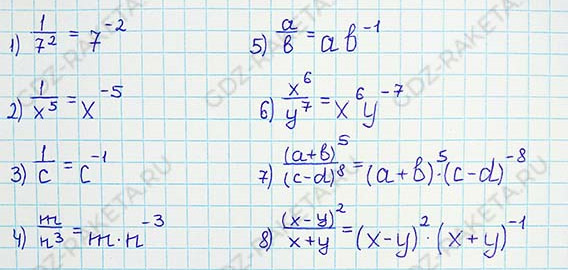 1) 1/7² = 7⁻²
2) 1/x⁵ = x⁻⁵
3) 1/c = c⁻¹
4) m/n³ = m·n⁻³
5) a/b = ab⁻¹
6) x⁶/y⁷ = x⁶y⁻⁷
7) (a+b)⁵/(c-d)⁸ = (a+b)⁵·(c-d)⁻⁸
8) (x-y)²/x+y = (x-y)²·(x+y)⁻¹
GDZ-RAKETA.RU